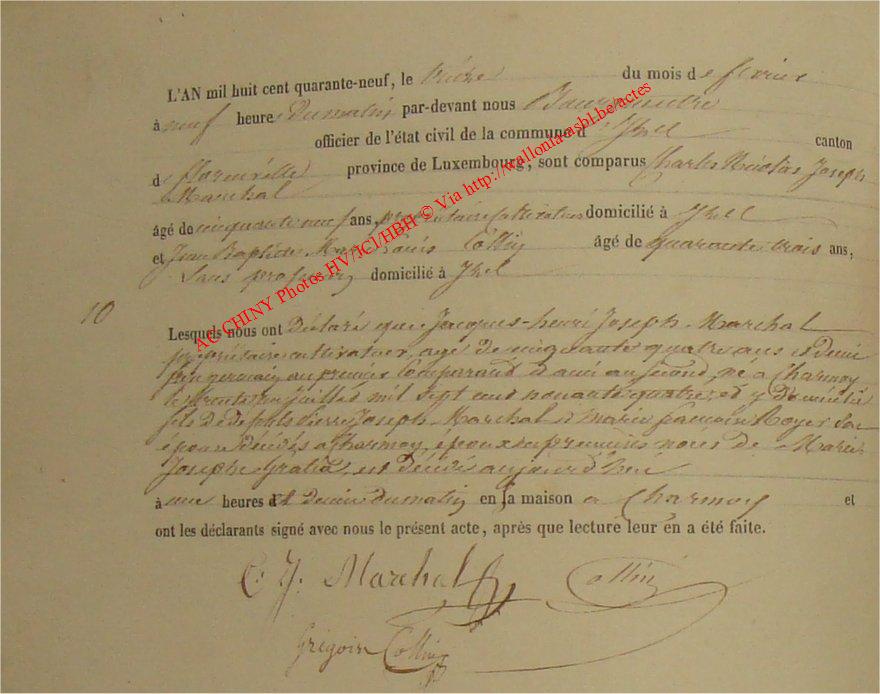 L'AN mil huit cent quarante-neuf, le du mois de fevrier
à neuf heures du matin par-devant nous Bourgmestre
officier de l'état civil de la commune d'Izel canton
de florenville province de Luxembourg, sont comparus Charles Nicolas Joseph
Marchal
âgé de cinquante neuf ans, propriétaire cultivateur domicilié à Izel
et Jean Baptiste Louis Collin âgé de quarante trois ans,
Sans profession domicilié à Izel
10
Lesquels nous ont Déclaré que Jacques-henri Joseph Marchal
propriétaire cultivateur, agé de cinquante quatre ans et demi
germain au premier Comparant et ami au second, né à Charmoy
le trente un juillet mil sept cent nonante quatre et y Domicilié
fils de defunts Pierre Joseph Marchal et marie françoise Royer Son
épouse Décédés a Charmoy, époux en premières noces de Marie
Joseph est Décédé aujourd'hui
à une heures et Demie du matin en sa maison a Charmoy et
ont les déclarants signé avec nous le présent acte, après que lecture leur en a été faite.
C. J. Marchal Collin
Grégoire Collin
AC CHINY Photos HV/JCl/HBH © Via http://wallonia-asbl.be/actes